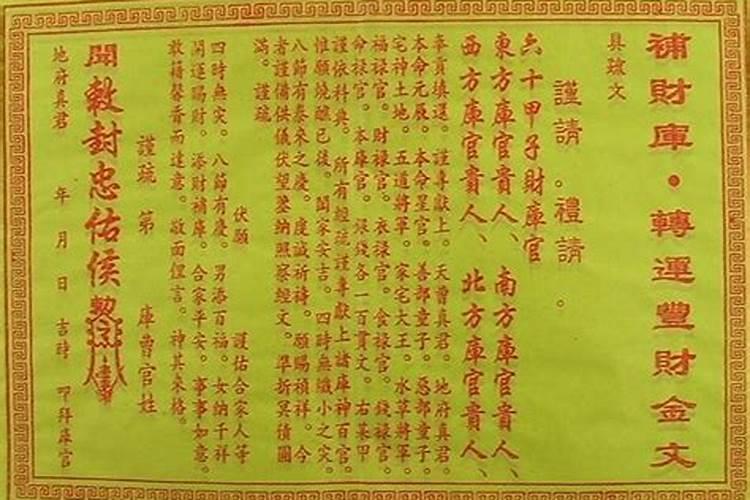 補財庫・轉運豐財金文
具疏文
謹請。禮請。
六十甲子財庫官
東方庫官貴人、南方庫官貴人、
西方庫官貴人、北方庫官貴人、
奉貢填還。謹專獻上。天曹真君。地府真君。
本命元辰。本命星官。善部童子。惡部童子。
宅神土地。五道將軍。家宅大王。水草將軍。
福祿官。財祿官。衣祿官。食祿官。錢祿官。
命祿官。本庫官。銀錢各一百貫文。右某甲
謹依科典。所有經疏謹專獻上諸庫神百官。
惟願燒醮已後。閤家安吉。四時無纖小之災。
八節有泰來之慶。虔誠祈禱。願賜禎祥。今
者謹備供儀伏望鑒納照察經文。準折冥債圓
滿。謹疏
伏願 謹佑合家人等
四時無災。八節有慶。男添百福。女納千祥
開運賜財。添財補庫。合家平安。事事如意。
敬籍馨香而達意。敬面俚言。神其來格。
謹疏 第 庫曹官姓
聞敕封忠佑侯
地府真君 年 月 日 吉時 叩拜庫官